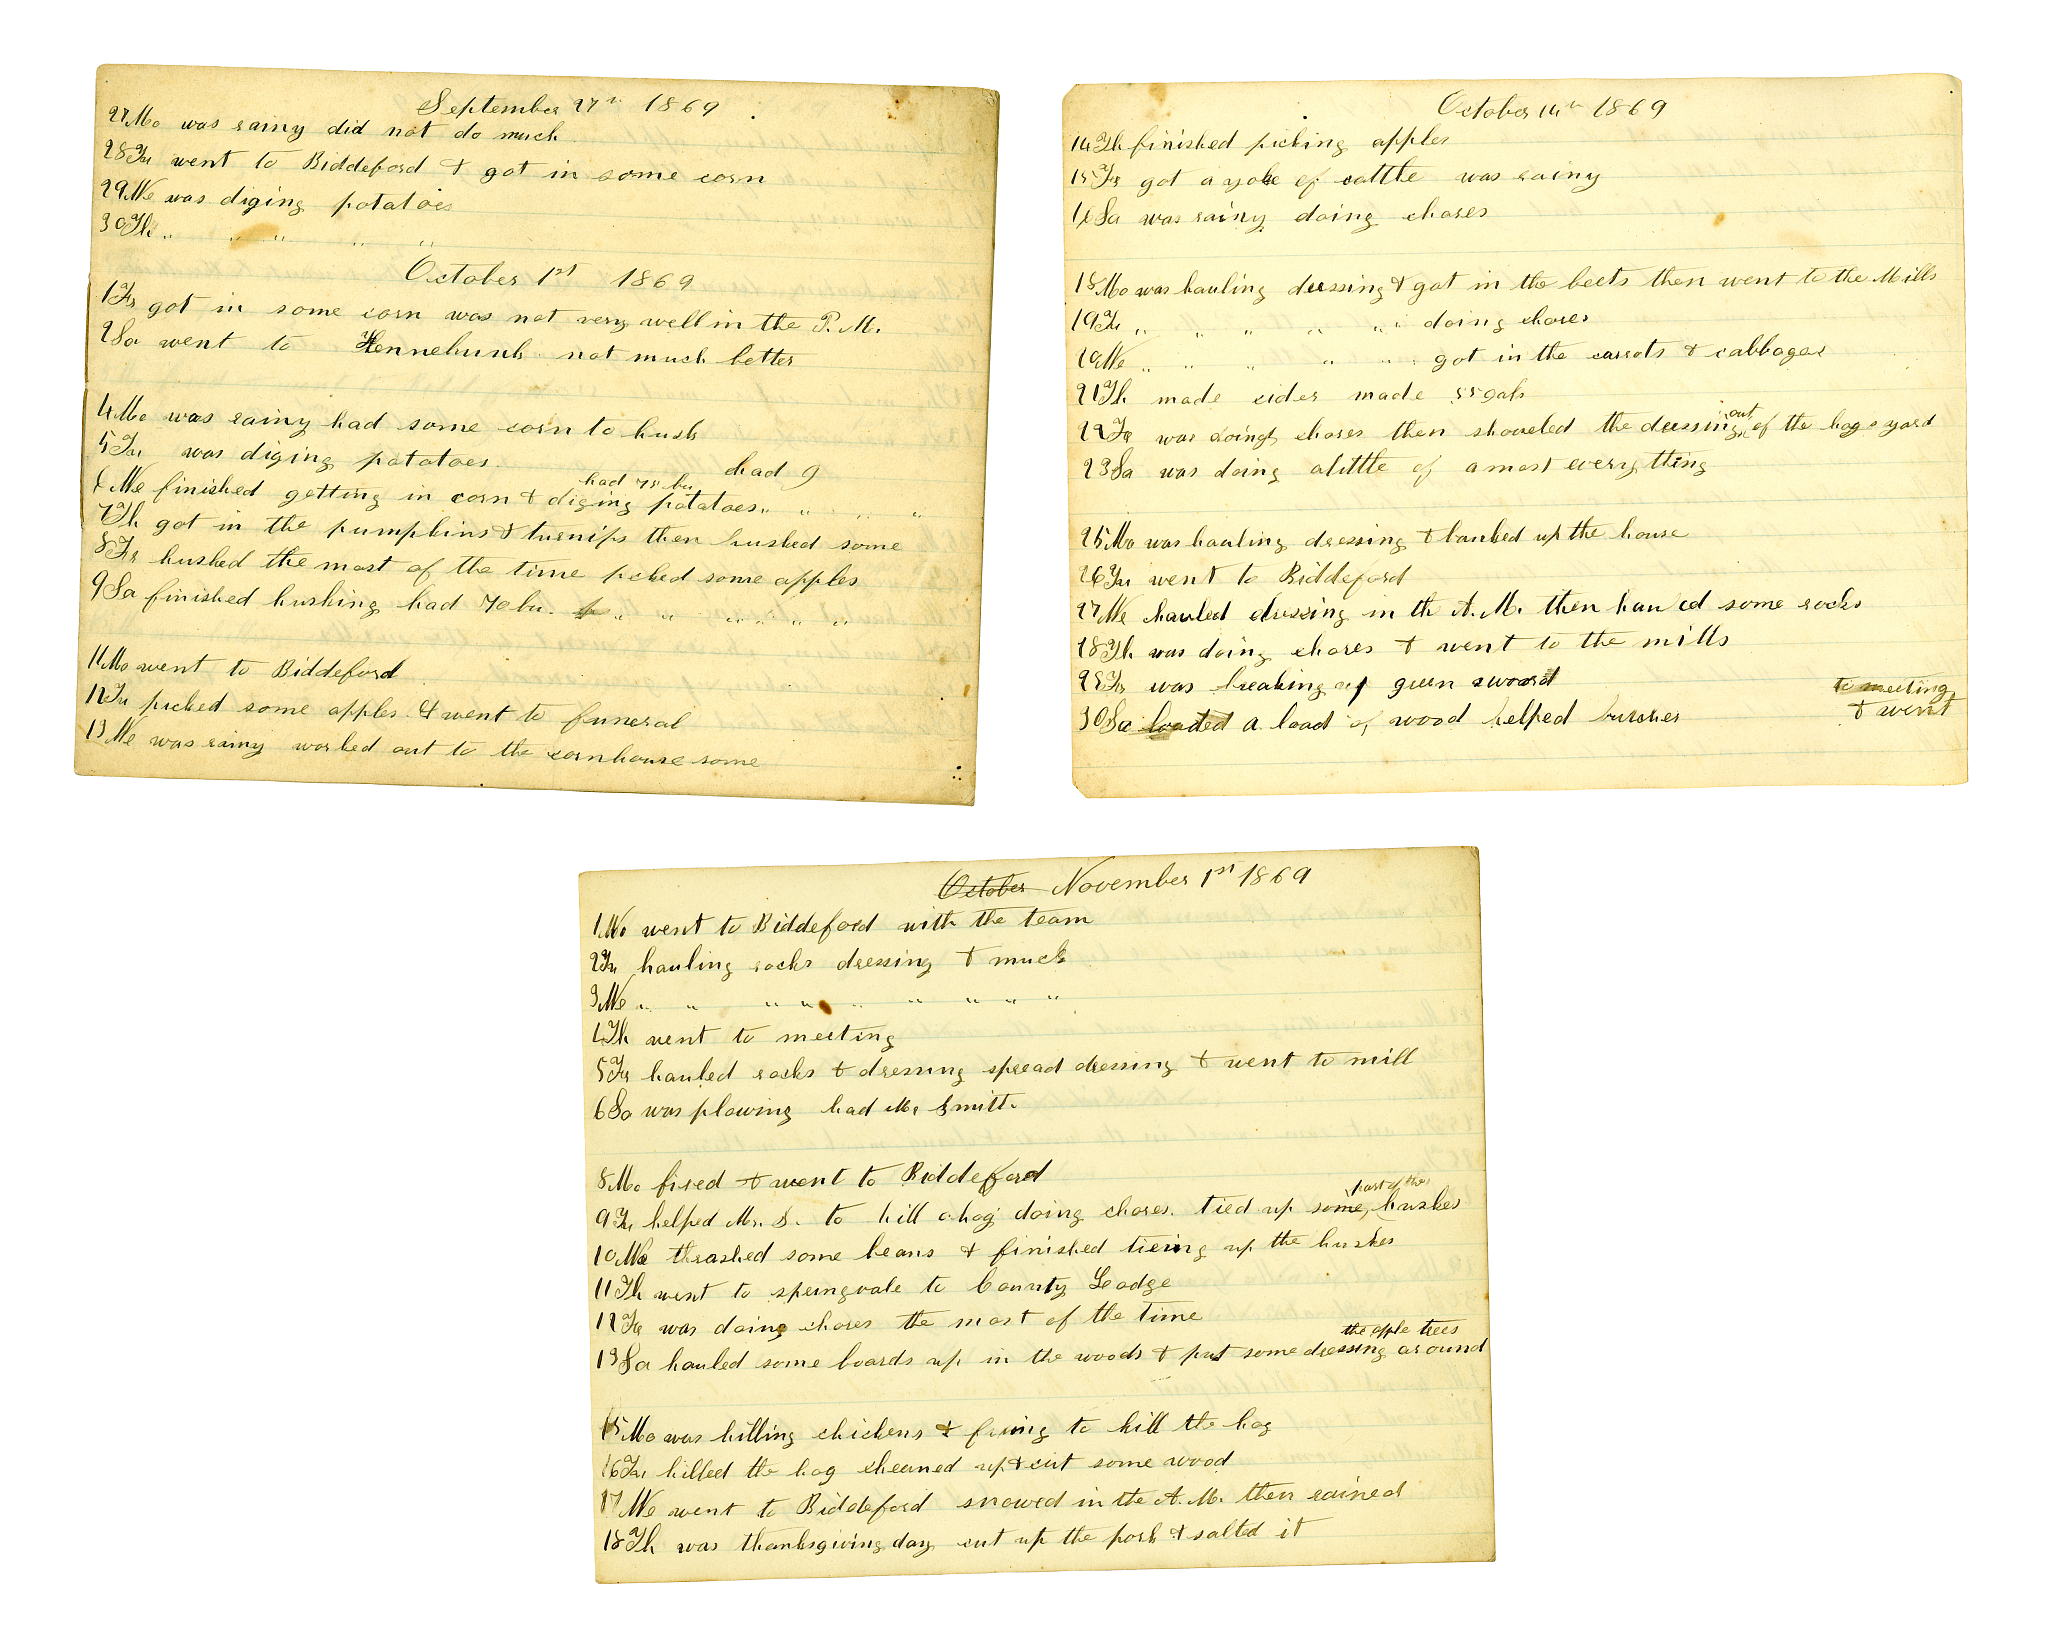 September 27th 1869
27Mo was rainy did not do much
28Tu went to Biddeford & got in some corn
29We was diging potatoes
30Th " " " " "
October 1st 1869
1Fr got in some corn was not very well in the P.M.
2Sa went to Kennebunk not much better
4Mo was rainy had some corn to husk
5Tu was diging potatoes.
had 9
had 75 bu
6We finished getting in corn & diging potatoes " " " "
7Th got in the pumpkins & turnips then husked some
8Fr husked the most of the time picked some apples
9Sa finished husking had 70 bu. " " " " " "
11Mo went to Biddeford
12Tu picked some apples & went to funeral
13We was rainy worked out to the cornhouse some
October 14th 1869
14Th finished picking apples
15Fr got a yoke of cattle was rainy
16Sa was rainy doing chores
18Mo was hauling dressing & got in the beets then went to the Mills
19Tu " " " " " " doing chores
20We " " " " " got in the carrots & cabbages
21Th made cider made 55 gals
out
22Fr was doing chores then shoveled the dressing of the hogs yard
23Sa was doing alittle of amost everything
25Mo was hauling dressing & banked up the house
26Tu went to Biddeford
27We hauled dressing in th A.M. then hauled some rocks
28Th was doing chores & went to the mills
29Fr was breaking up green sword
to meeting
30Sa loaded a load of wood helped butcher & went
October November 1st 1869
1Mo went to Biddeford with the team
2Tu hauling rocks dressing & muck
3We " " " " " " " " "
4Th went to meeting
5Fr hauled rocks & dressing spread dressing & went to mill
6Sa was plowing had Mr Smith
8Mo fixed & went to Biddeford
part of the
9Tu helped Mr. S. to kill a hog doing chores. tied up some husks
10We thrashed some beans & finished tieing up the husks
11Th went to springvale to County Lodge
12Fr was doing chores the most of the time
the apple trees
13Sa hauled some boards up in the woods & put some dressing around
15Mo was killing chickens & fixing to kill the hog
16Tu killed the hog cleaned up & cut some wood
17We went to Biddeford snowed in the A.M. then rained
18Th was thanksgiving day cut up the pork & salted it